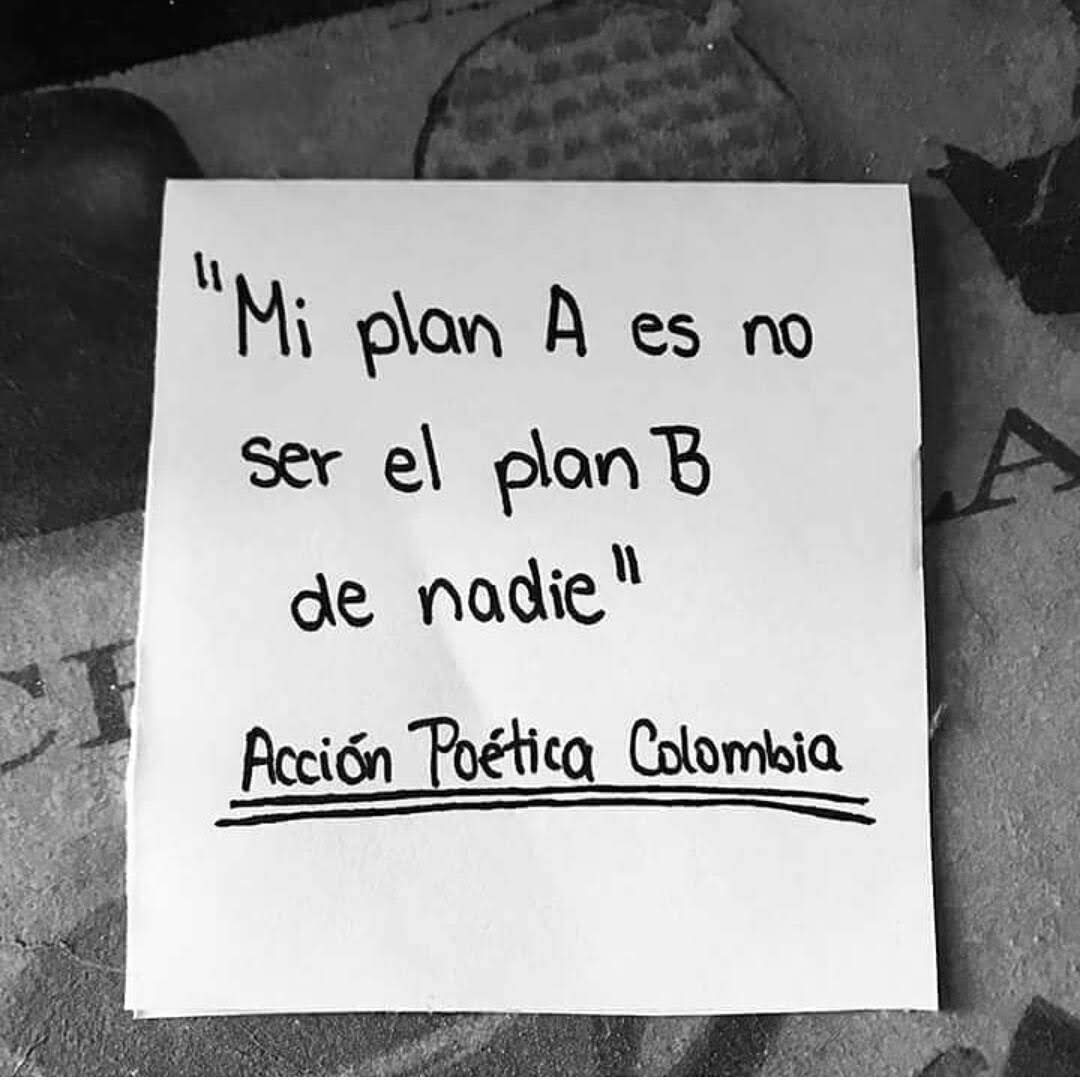 "Mi plan A es no
ser el plan B
de nadie"
Acción Poética Colombia